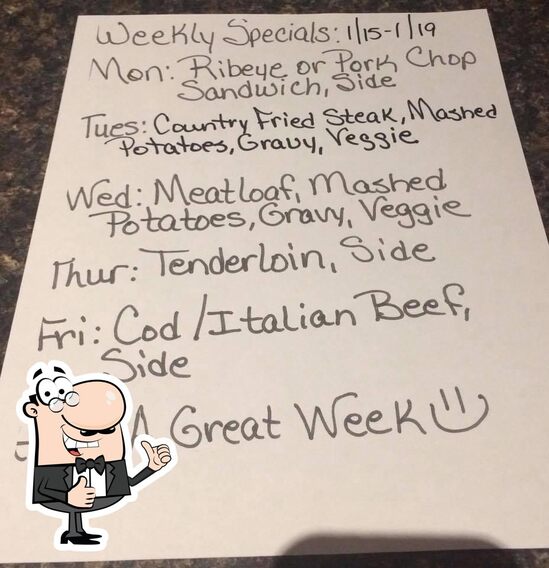 Weekly Specials: 1/15-1/19
Mon: Ribeye or Pork Chop
Sandwich, Side
Tues: Country Fried Steak, Mashed
Potatoes, Gravy, Veggie
Wed: Meatloaf, Mashed
Potatoes, Gravy, Veggie
Thur: Tenderloin, Side
Fri: Cod/Italian Beef,
Side
A Great Week